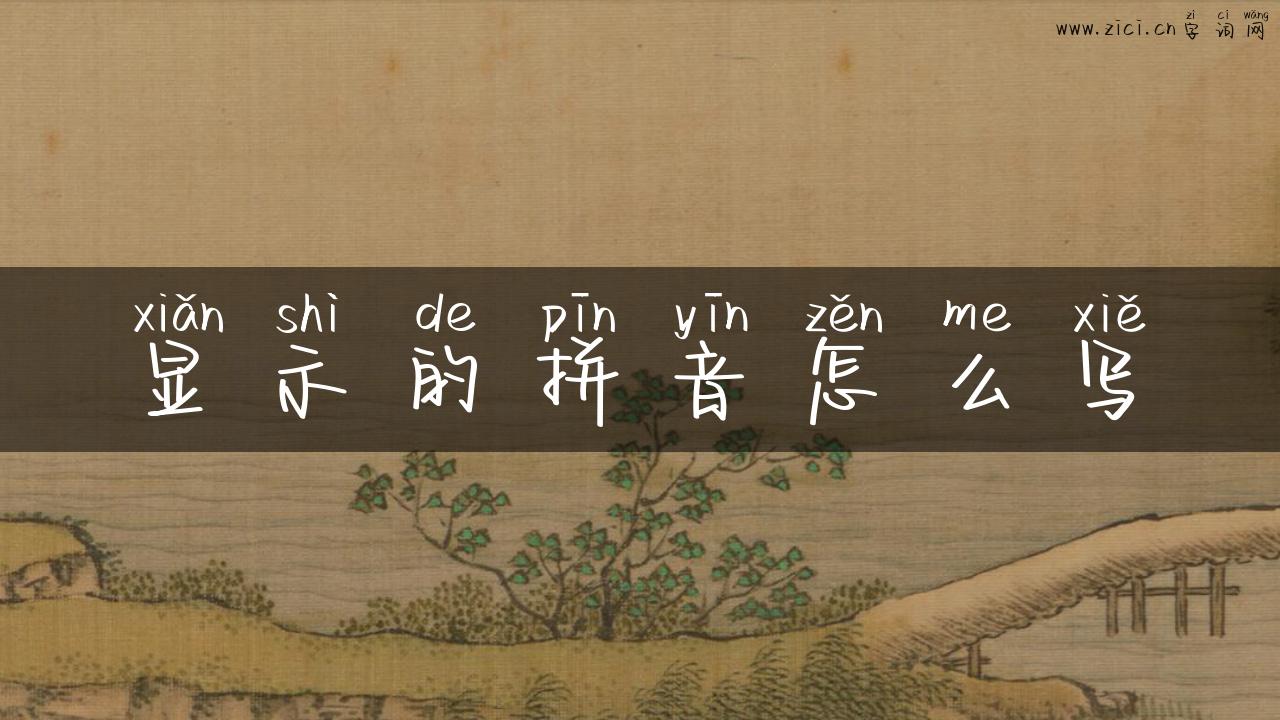 zì cí wǎng
www.zici.cn 字词网
xiǎn shì de pīn yīn zěn me xiě
显示的拼音怎么写